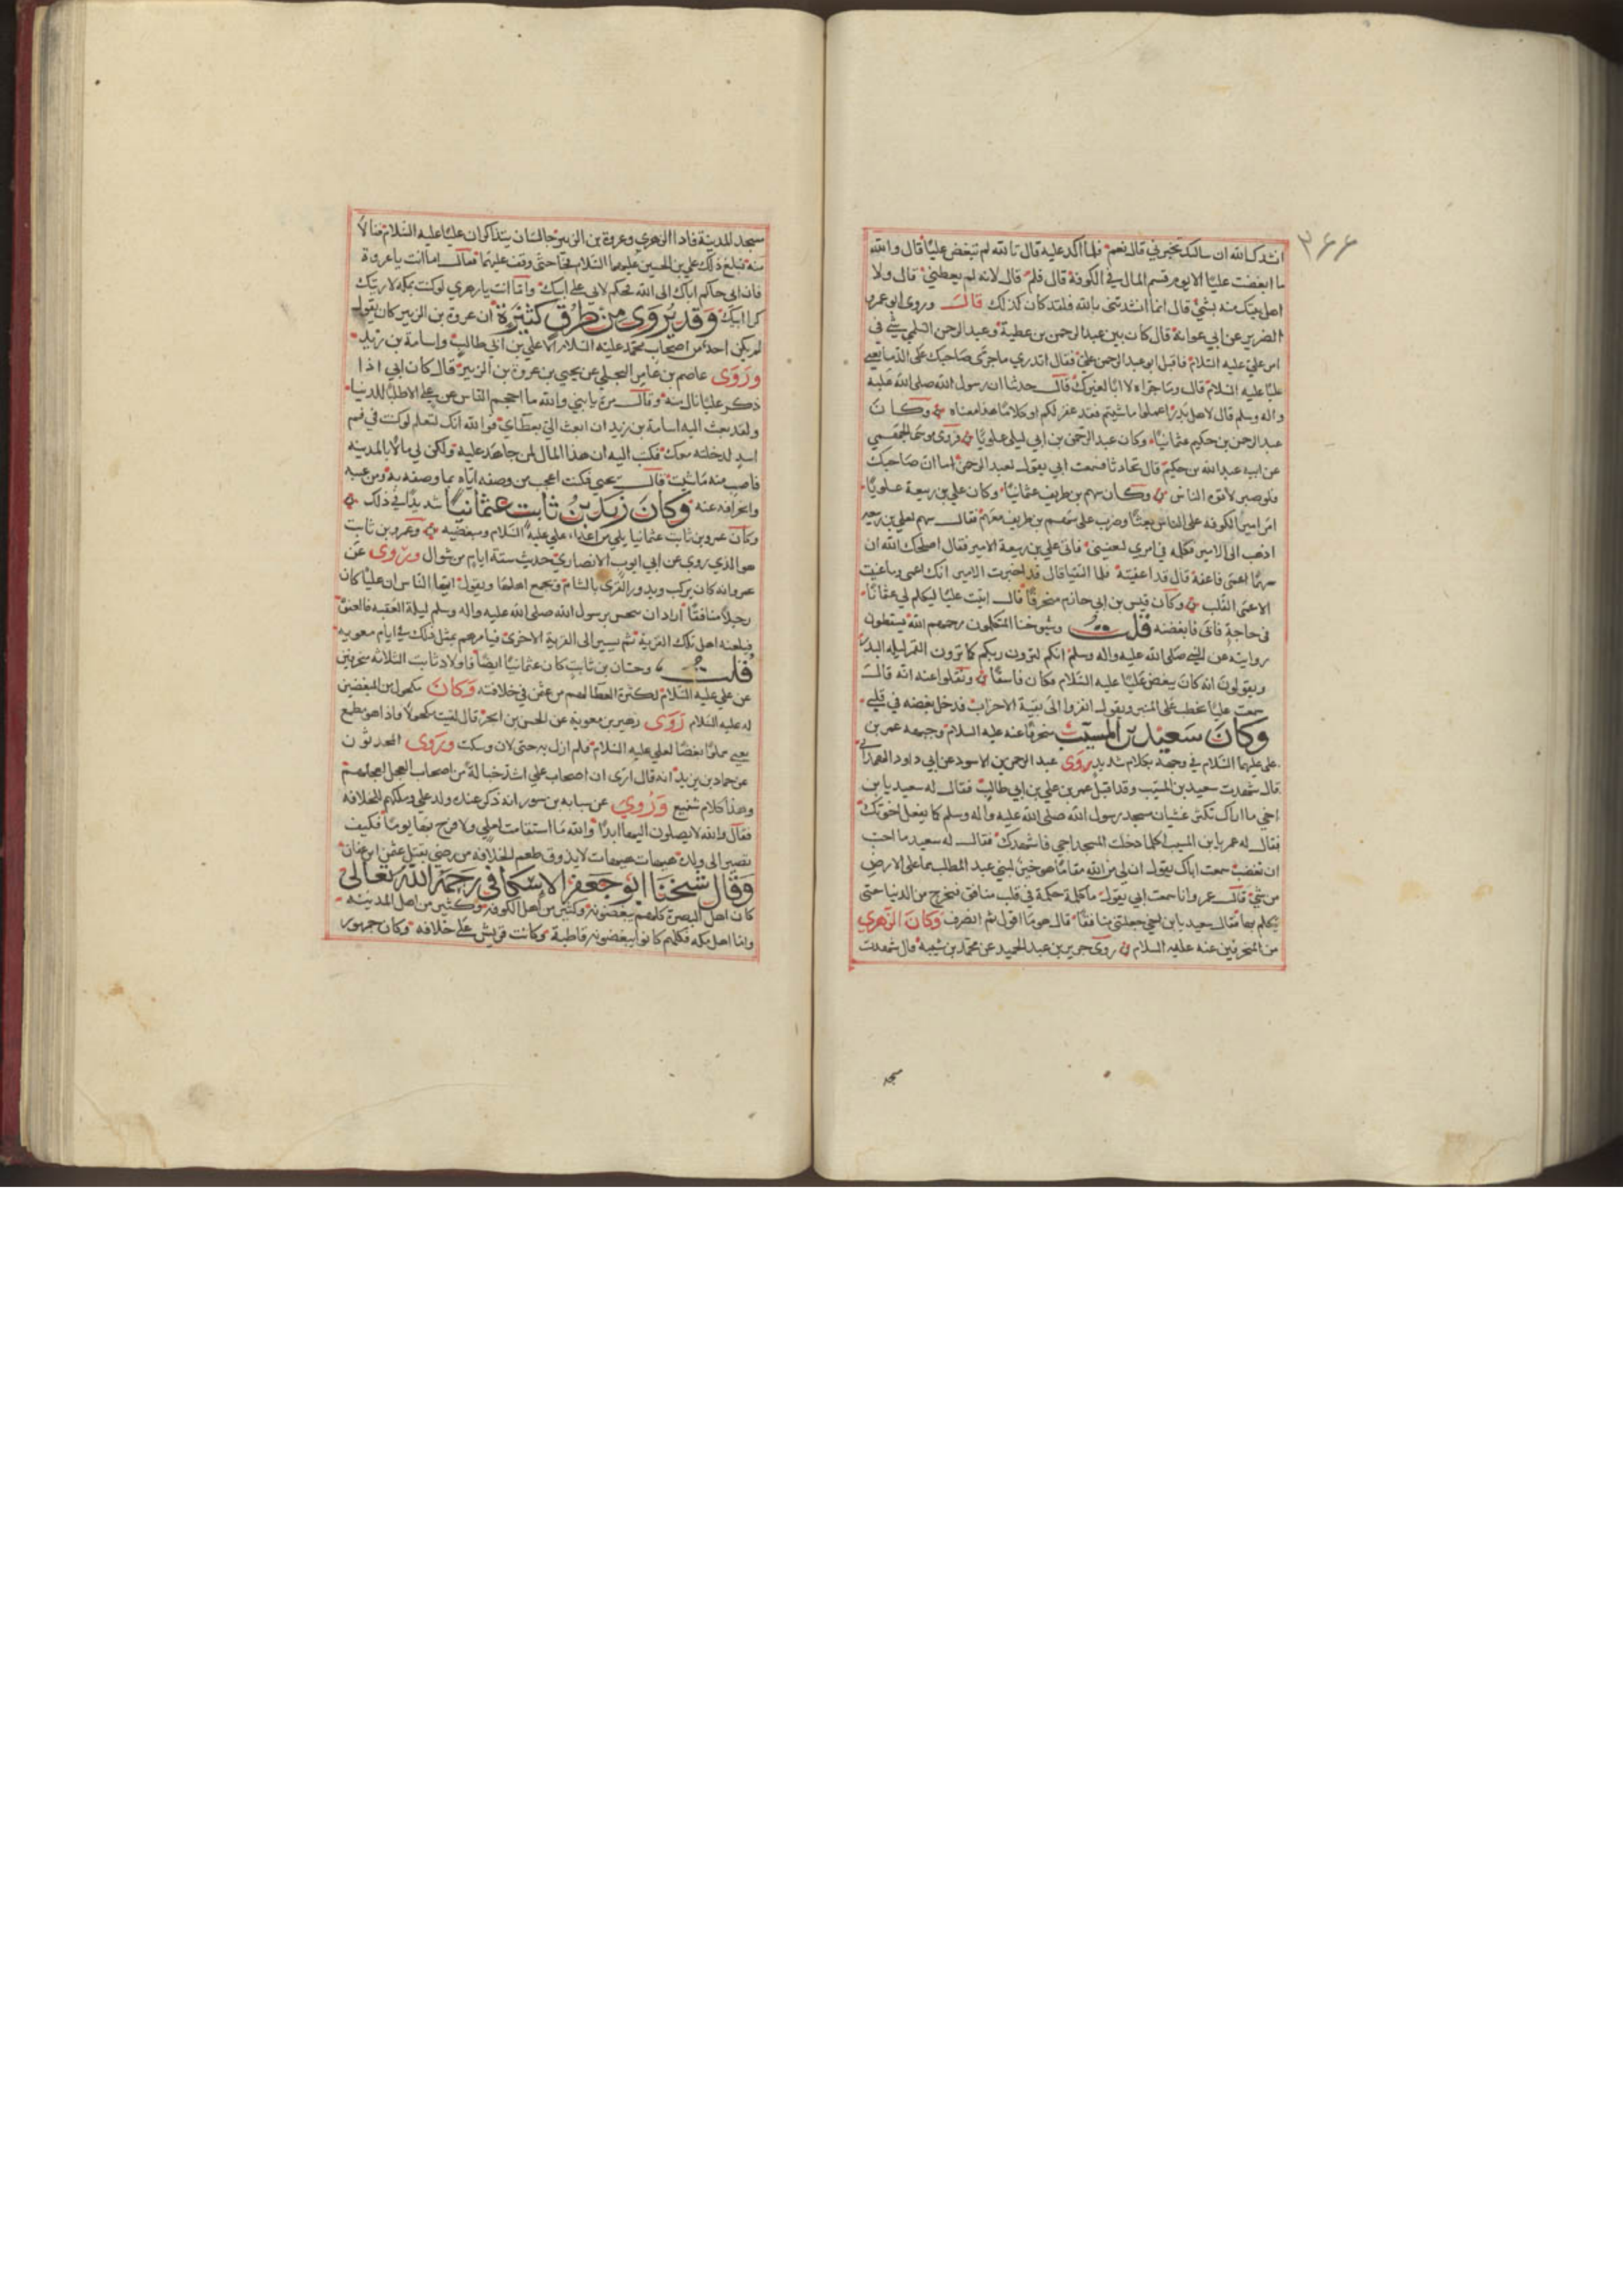 ٣٦٦
انشدك بالله ان سالتك تخبرني قال نعم فلما اكد عليه قال تالله لم تبغض عليًا قال والله
ما ابغضت عليًا الا يوم قسم المال في الكوفة قال فلم قال لانه لم يعطني قال ولا
اهل بيتك منه بشيء قال انما انشدتني بالله فلقد كان كذلك قال وروى ابو عمر
الضرير عن ابي عوانة قال كان بين عبد الرحمن بن عطية وعبد الرحمن السلمي شيء في
امر علي عليه السلام فاقبل ابو عبد الرحمن على فقال اتدري ما جرّى صاحبك على الدما يعني
عليًا عليه السلام قال وما جراه لا ابا لغيرك قال حدثنا ان رسول الله صلى الله عليه
واله وسلم قال لاهل بدر اعملوا ما شيتم فقد غفر لكم او كلامًا هذا معناه وكان
عبد الرحمن بن حكيم عثمانيًا وكان عبد الرحمن بن ابي ليلى علويًا فروى موسى الجهني
عن ابيه عبد الله بن حكيم قال تحادثا فسمعت ابي يقول لعبد الرحمن اما ان صاحبك
فلو صبر لاتوه الناس وكان سهم بن طريف عثمانيًا وكان علي بن ربيعة علويًا
امر امير الكوفه على الناس بعثا وضرب على سهم بن طريف معهم فقال سهم لعلي بن ربيعه
اذهب الى الامير فكلمه في امري ليعفيني فاتى علي بن ربيعة الامير فقال اصلحك الله ان
سهمًا اعمى فاعفه قال قد اعفيته فلما التقيا قال قد اخبرت الامير انك اعمى وما عنيت
الاعمى القلب وكان قيس بن ابي حازم منحرفًا قال اتيت عليًا ليكلم لي عثمان
في حاجة فابى فابغضته قلت وشيوخنا المتكلمون رحمهم الله يسقطون
روايته عن النبي صلى الله عليه واله وسلم انكم لترون ربكم كما ترون القمر ليله البدر
ويقولون انه كان يبغض عليًا عليه السلام فكان فاسقًا ونقلوا عنه انه قال
سمعت عليًا يخطب على المنبر ويقول انفروا الى بقية الاحزاب فدخل بغضه في قلبي
وكان سعيد بن المسيب منحرفًا عنه عليه السلام وجبهه عمر بن
علي عليهما السلام في وجهه بكلام شديد روى عبد الرحمن بن الاسود عن ابي داود الهمداني
قال شهدت سعيد بن المسيب وقد اقبل عمر بن علي بن ابي طالب فقال له سعيد يا بن
اخي ما اراك تكثر غشيان مسجد رسول الله صلى الله عليه واله وسلم كما يفعل اخوتك
فقال له عمر يا بن المسيب اكلما دخلت المسجد اجي فاشهدك فقال له سعيد ما احب
ان تغضب سمعت اباك يقول ان لي من الله مقامًا هو خير لبني عبد المطلب مما على الارض
من شيء قال عمر وانا سمعت ابي يقول ما كلمة حكمة في قلب منافق فيخرج من الدنيا حتى
يتكلم بها فقال سعيد يا بن اخي جعلتني منافقًا قال هو ما اقول ثم انصرف وكان الزهري
من المنحرفين عنه عليه السلام روى جرير بن عبد الحميد عن محمد بن شيبة قال شهدت
مسجد
مسجد المدينة فاذا الزهري وعروة بن الزبير جالسان يتذاكران عليًا عليه السلام فنالا
منه فبلغ ذلك علي بن الحسين عليهما السلام فجا حتى وقف عليهما فقال اما انت يا عروة
فان ابي حاكم اباك الى الله فحكم لابي على ابيك واما انت يا زهري لو كنت بمكه لاريتك
كرا ابيك وقد يروى من طرق كثيرة ان عروة بن الزبير كان يقول
لم يكن احد من اصحاب محمد عليه السلام الا علي بن ابي طالب واسامة بن زيد
وروى عاصم بن عامر البجلي عن يحيى بن عروة بن الزبير قال كان ابي اذا
ذكر عليًا نال منه وقال مرة يا بني والله ما احجم الناس عن علي الا طلبًا للدنيا
ولقد بعث اليه اسامة بن زيد ان ابعث الي بعطاي فوالله انك لتعلم لو كنت في فم
اسد لدخلته معك فكتب اليه ان هذا المال لمن جاهد عليه ولكن لي مالًا بالمدينه
فاصب منه ما شيت قال يحيى فكنت اعجب من وصفه اياه بما وصفه به ومن عيبه
وانحرافه عنه وكان زيد بن ثابت عثمانيًا شديدًا في ذلك
وكان عمرو بن ثابت عثمانيا من اعداء علي عليه السلام ومبغضيه وعمرو بن ثابت
هو الذي روى عن ابي ايوب الانصاري حديث ستة ايام من شوال وروى عن
عمرو انه كان يركب ويدور القرى بالشام ويجمع اهلها ويقول ايها الناس ان عليًا كان
رجلًا منافقًا اراد ان ينخس برسول الله صلى الله عليه واله وسلم ليلة العقبه فالعنوه
فيلعنه اهل تلك القرية ثم يسير الى القرية الاخرى فيامرهم بمثل ذلك في ايام معويه
قلت وحسان بن ثابت كان عثمانيًا ايضًا فاولاد ثابت الثلاثه منحرفين
عن علي عليه السلام لكثرة العطا لهم من عثمن في خلافته وكان مكحول من المبغضين
له عليه السلام روى زهير بن معوية عن الحسن بن الحر قال لقيت مكحولًا فاذا هو مطبع
يعني مملوًا بغضًا لعلي عليه السلام فلم ازل به حتى لان وسكت وروى المحدثون
عن حماد بن زيد انه قال ارى ان اصحاب علي اشد حبا له من اصحاب العجل لعجلهم
وهذا كلام شنيع وروي عن شبابه بن سور انه ذكر عنده ولد علي وطلبهم للخلافه
فقال والله لا يصلون اليها ابدًا والله ما استقامت لعلي ولا فرح بها يومًا فكيف
تصير الى ولده هيهات هيهات لا يذوق طعم الخلافه من رضي بقتل عثمن ابن عفان
وقال شيخنا ابو جعفر الاسكافي رحمه الله تعالى
كان اهل البصرة كلهم يبغضونه وكثير من اهل الكوفه وكثير من اهل المدينه
واما اهل مكه فكلهم كانوا يبغضونه قاطبة وكانت قريش على خلافه وكان جمهور